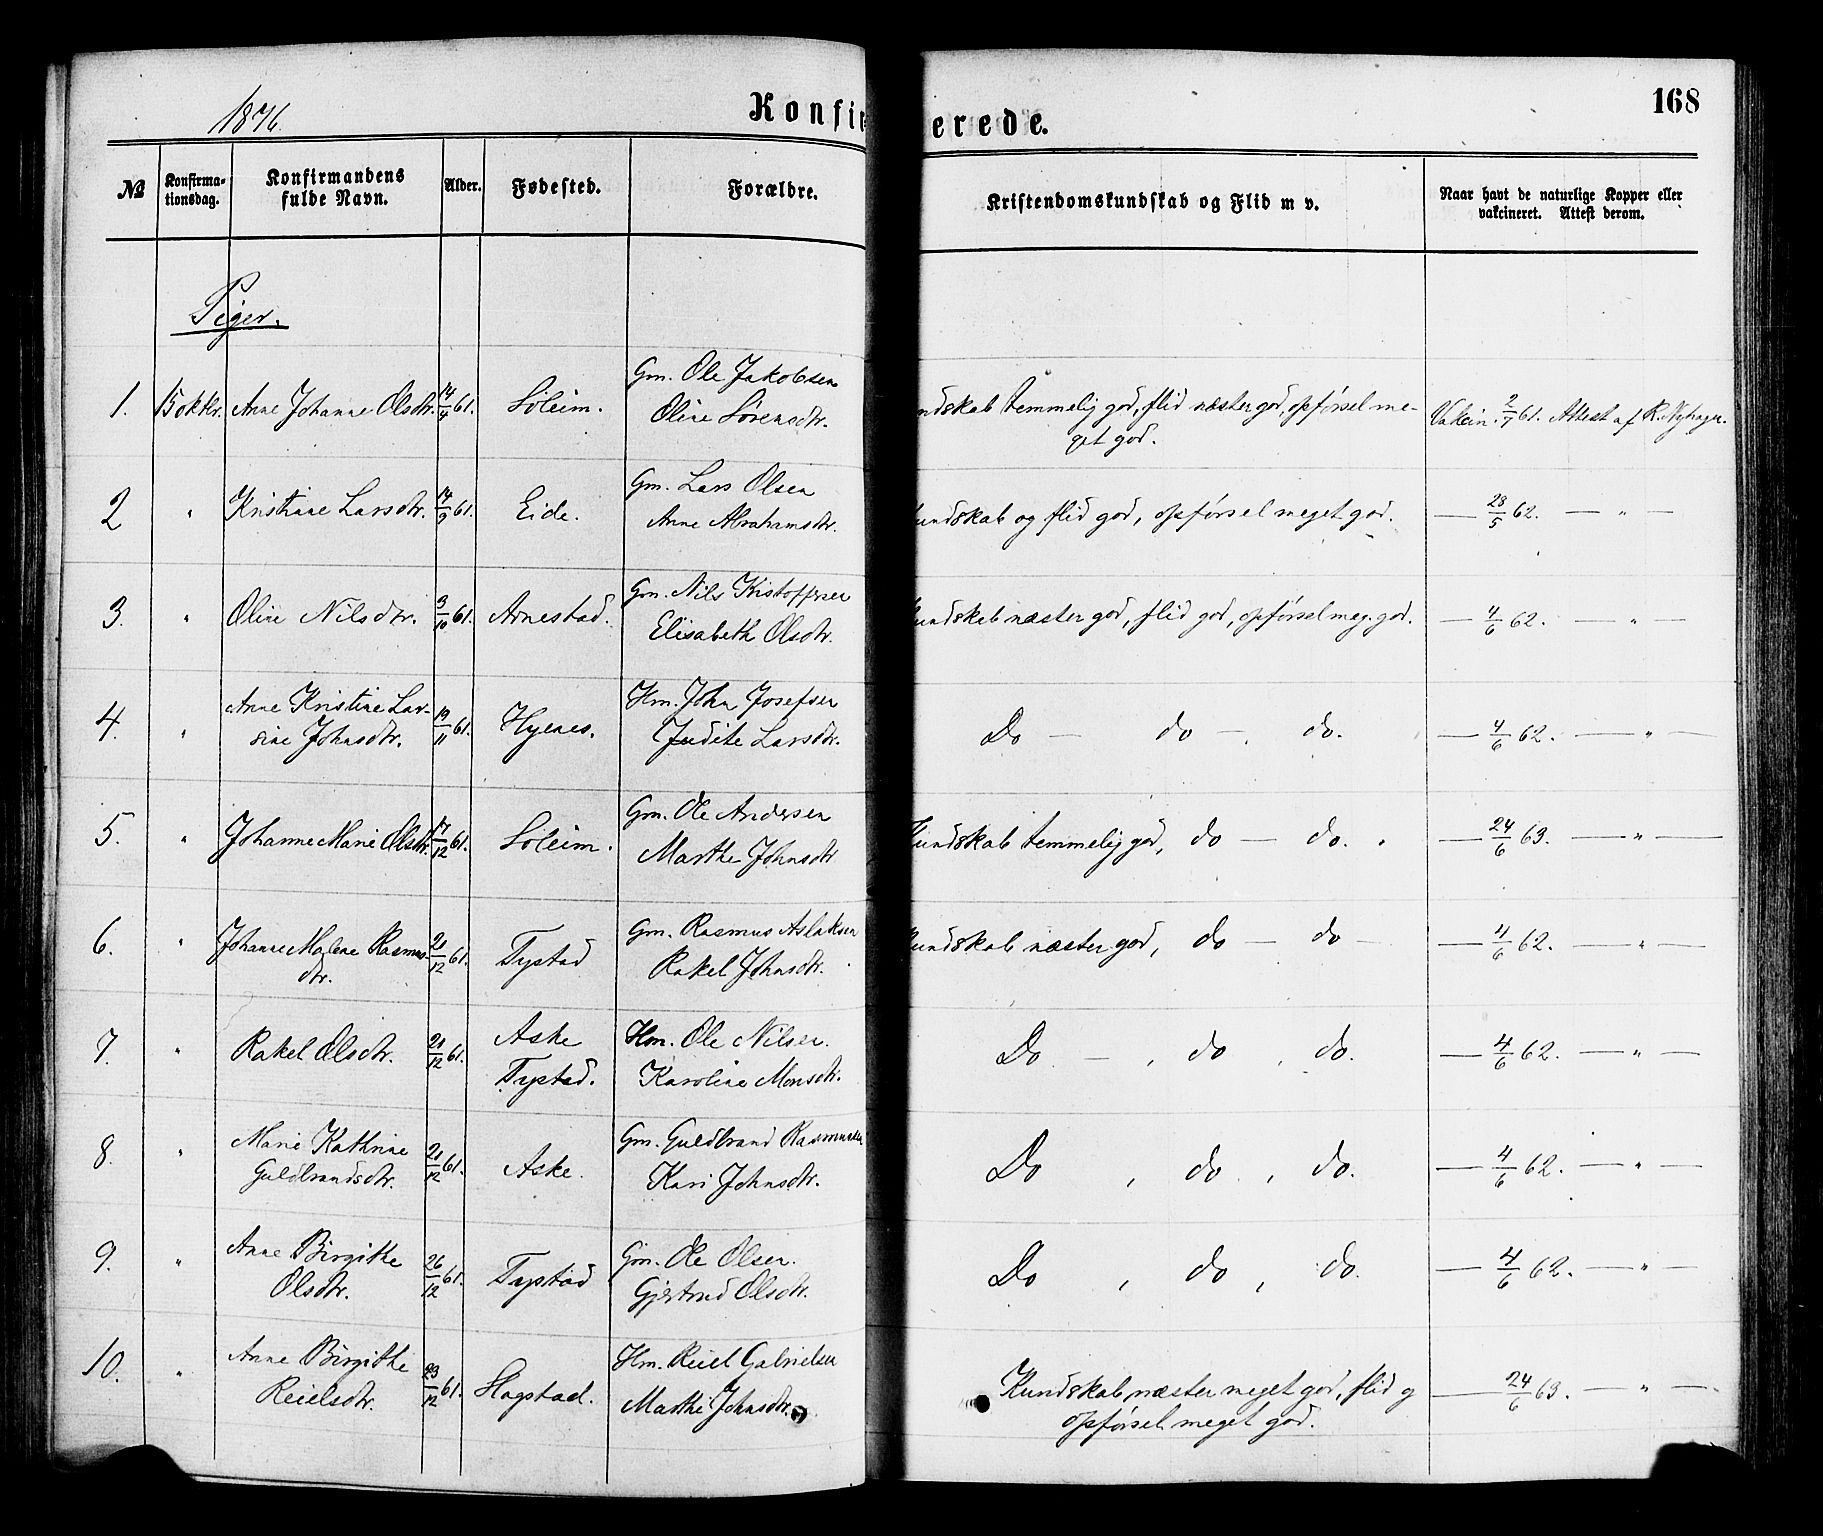 1876.
Konfir erede.
168
№ Konfirma-tionsdag. Konfirmandens fulde Navn. Alder. Fødested. Forældre. Kristendomskundskab og Flid m v. Naar havt de naturlige Kopper eller vakcineret. Attest derom.
Piger.
1. 15 oktbr. Anne Johanne Olsdtr. 14/4 61. Söleim. Gm. Ole Jakobsen
Oline Sörensdtr.
ndskab temmelig god, flid næster god, opförsel me-
get god.
Vakcin. 2/7 61. Attest af R. Nyhagn.
2 " Kristiane Larsdtr. 14/9 61. Eide. Gm. Lars Olsen
Anne Abrahamsdtr.
undskab og flid god, opförsel meget god. — 28/5 62. — " —
3. " Oline Nilsdtr. 3/10 61. Arnestad. Gm. Nils Kristoffersen
Elisabeth Olsdtr.
undskab næster god, flid god, opförsel meg. god. — 4/6 62. — " —
4. " Anne Kristine Lar-
sine Johnsdtr. 19/11 61. Hyenes. Hm. John Josefsen
Judite Larsdtr.
Do — do — . do. — 4/6 62. — " —
5. " Johanne Marie Olsdtr. 17/12 61. Söleim. Gm. Ole Andersen
Marthe Johnsdtr
Kundskab temmelig god, do — do. — 24/6 63. — " —
6. " Johanne Malene Rasmus-
dtr. 20/12 61. Tystad Gm. Rasmus Aslaksen
Rakel Johnsdtr.
Kundskab næster god, do — do — — 4/6 62. — " —
7. " Rakel Olsdtr. 21/12 61. Aske
Tystad. Hm. Ole Nilsen.
Karoline Monsdtr.
Do — , do , do. — 4/6 62. — " —
8. " Marie Kathrine
Guldbrandsdtr. 21/12 61. Aske. Gm. Guldbrand Rasmussen
Kari Johnsdtr.
Do , do , do. — 4/6 62. — " —
9. " Anne Birgithe
Olsdtr. 26/12 61. Tystad Gm. Ole Olsen.
Gjertrud Olsdtr.
Do , do , do. — 4/6 62. — " —
10. " Anne Birgithe
Reielsdtr. 29/12 61. Hogstad. Hm. Reiel Gabrielsen
Marthe Johnsdtr.
Kundskab næster meget god, flid og
opförsel meget god.
— 24/6 63. — " —